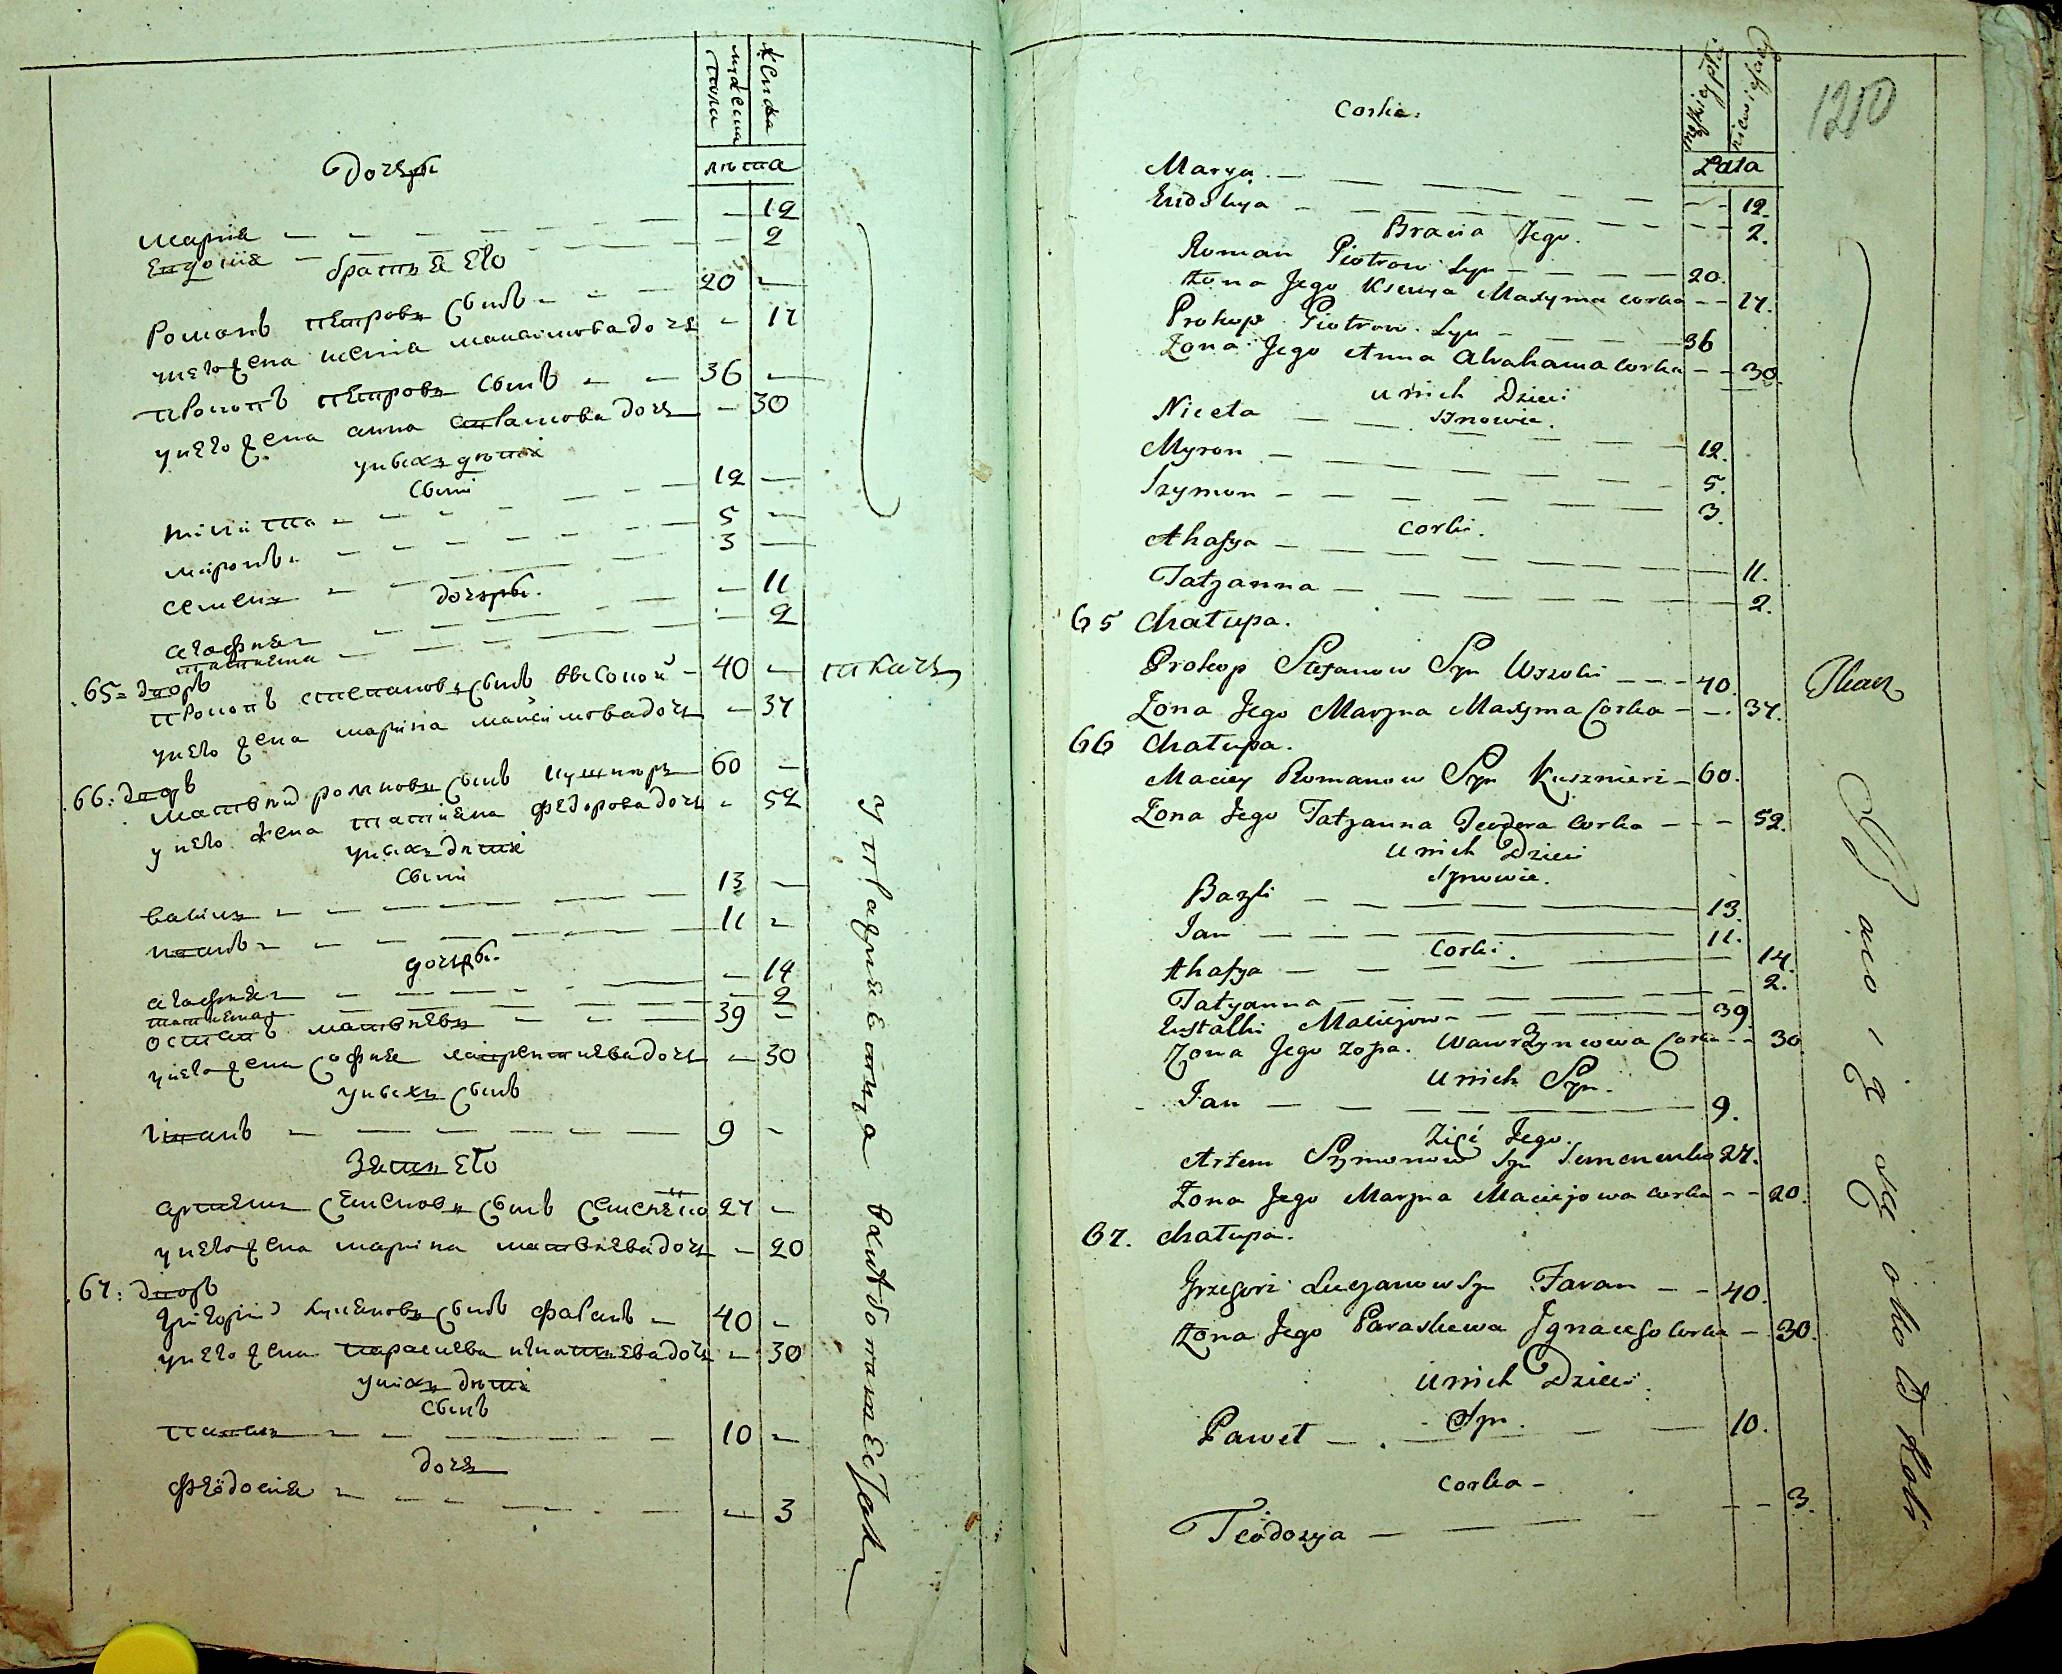 мужеска пола
женска
лѣта
Дочери
Мария — — — 12
Евдокия — — — 2
братья Его
Романъ петровъ сынъ — — 20 —
у него жена ксения максимова дочь — 17
Прокопъ петровъ сынъ — — 36 —
у него жена анна авраамова дочь — 30
у них дѣти
сыни
Никита — — 12 —
миронъ — — 5 —
семенъ — — 3 —
дочери.
агафия — — 11
татиена — — 2
65 = дворъ
прокопъ степановъ сынъ высокой — 40 — ткачъ
у него жена марина максимова дочь — 37
66: дворъ
матвѣй романовъ сынъ кушниръ 60 —
у него жена татиена федорова дочь — 52
у них дѣти
сыни
василь — — 13 —
иванъ — — 11 —
дочери.
агафия — — — 14
татиена — — — 2
остапъ матвѣевъ — — 39 —
у него жена софия лаврентиева дочь — 30
у нихъ сынъ
иванъ — — 9 —
Зять Его
артемъ семеновъ сынъ семененко 27 —
у него жена марина матвѣева дочь — 20
67: дворъ
григорий лукьяновъ сынъ фаранъ — 40 —
у него жена параскева игнатиева дочь — 30
у них дѣти
сынъ
павелъ — — 10 —
дочь
феодосия — — — 3
męzkiey płci
niewiesciey
Lata
1210
Corki.
Marya — — — 12.
Eudokya — — — 2.
Bracia Jego.
Roman Piotrow Syn — — 20.
Żona Jego Ksenya Maxyma corka — — 17.
Prokop Piotrow Syn — — 36
Żona Jego Anna Abrahama corka — — 30.
u nich Dzieci
Synowie.
Niceta — — 12.
Myron — — 5.
Szymon — — 3.
Corki.
Ahafya — — 11.
Tatyanna — — 2.
65 Chałupa.
Prokop Stefanow Syn Wysoki — — 40. Tkacz
Żona Jego Maryna Maxyma Corka — — 37.
66 Chałupa.
Maciey Romanow Syn Kusznierz — 60.
Żona Jego Tatyanna Teodora corka — — — 52.
u nich Dzieci
Synowie.
Bazyli — — 13.
Jan — — 11.
Corki.
Ahafya — — 14.
Tatyanna — — 2.
Eustafki Maciejow — — 39.
Żona Jego Zofia. Wawrzyncowa Corka — — 30.
u nich Syn.
Jan — — 9.
Zięć Jego.
Artem Szymonow Syn Semenenko 27.
Żona Jego Maryna Maciejowa corka — — 20.
67. Chałupa.
Grzegorz Lucyanow Syn Faran — — 40.
Żona Jego Paraskewa Ignacego corka — 30.
u nich Dzieci
Syn.
Paweł — — 10.
Corka —
Teodozya — — — 3.